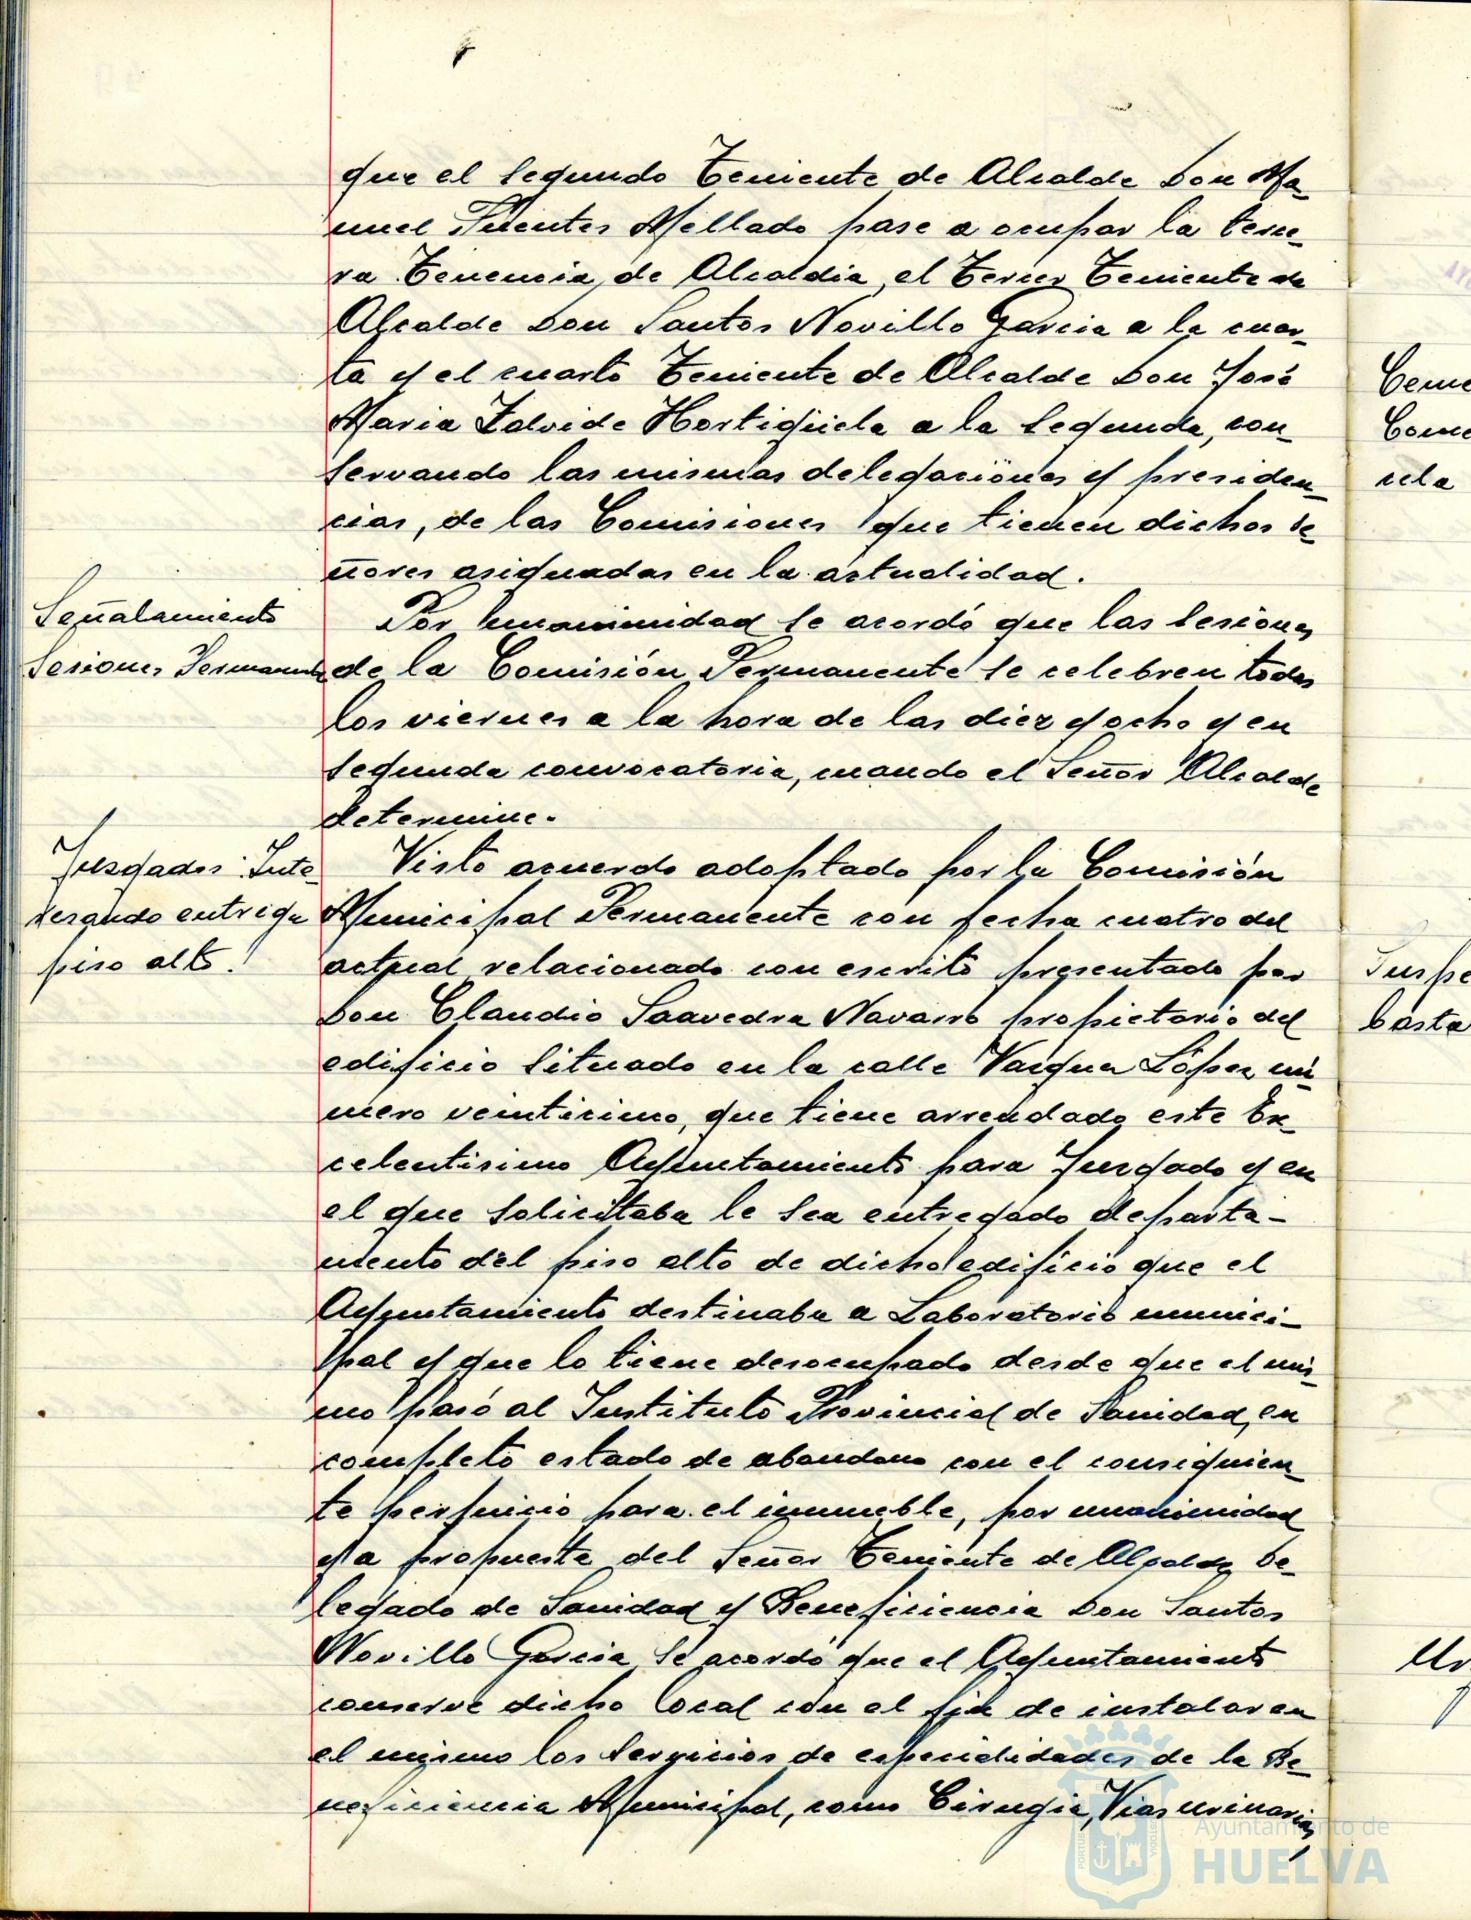 que el segundo Teniente de Alcalde Don Ma-
nuel Fuentes Mellado pase a ocupar la terce-
ra Tenencia de Alcaldia, el tercer Teniente de
Alcalde Don Santos Novillo Garcia a la cuar-
ta y el cuarto Teniente de Alcalde Don José
Maria Zalvide Hortigüela a la segunda, con-
servando las mismas delegaciones y presiden-
cias, de las Comisiones que tienen dichos se-
ñores asignadas en la actualidad.
Señalamiento
Sesiones Permanente
Por unanimidad se acordó que las sesiones
de la Comisión Permanente se celebren todos
los viernes a la hora de las diez y ocho y en
segunda convocatoria, cuando el Señor Alcalde
determine.
Juzgados: Inte-
resando entrega
piso alto.
Visto acuerdo adoptado por la Comisión
Municipal Permanente con fecha cuatro del
actual relacionado con escrito presentado por
Don Claudio Saavedra Navarro propietario del
edificio situado en la calle Vazquez López nú-
mero veinticinco, que tiene arrendado este Ex-
celentisimo Ayuntamiento para Juzgado y en
el que solicitaba le sea entregado departa-
mento del piso alto de dicho edificio que el
Ayuntamiento destinaba a Laboratorio munici-
pal y que lo tiene desocupado desde que el mis-
mo pasó al Instituto Provincial de Sanidad, en
completo estado de abandono con el consiguien-
te perjuicio para el inmueble, por unanimidad
y a propuesta del Señor Teniente de Alcalde De-
legado de Sanidad y Beneficiencia Don Santos
Novillo Garcia, se acordó que el Ayuntamiento
conserve dicho local con el fin de instalar en
el mismo los servicios de especialidades de la Be-
neficiencia Municipal, como Cirugia, Vias urinarias,
Ayuntamiento de
HUELVA